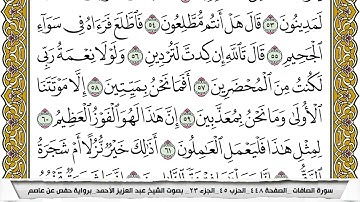 لَمَدِينُونَ ٥٣ قَالَ هَلْ أَنتُم مُّطَّلِعُونَ ٥٤ فَٱطَّلَعَ فَرَءَاهُ فِى سَوَآءِ
ٱلْجَحِيمِ ٥٥ قَالَ تَٱللَّهِ إِن كِدتَّ لَتُرْدِينِ ٥٦ وَلَوْلَا نِعْمَةُ رَبِّى
لَكُنتُ مِنَ ٱلْمُحْضَرِينَ ٥٧ أَفَمَا نَحْنُ بِمَيِّتِينَ ٥٨ إِلَّا مَوْتَتَنَا
ٱلْأُولَىٰ وَمَا نَحْنُ بِمُعَذَّبِينَ ٥٩ إِنَّ هَٰذَا لَهُوَ ٱلْفَوْزُ ٱلْعَظِيمُ ٦٠
لِمِثْلِ هَٰذَا فَلْيَعْمَلِ ٱلْعَٰمِلُونَ ٦١ أَذَٰلِكَ خَيْرٌ نُّزُلًا أَمْ شَجَرَةُ
سورة الصافات _الصفحة ٤٤٨_ الحزب ٤٥_ الجزء ٢٣_ بصوت الشيخ عبد العزيز الأحمد_ برواية حفص عن عاصم